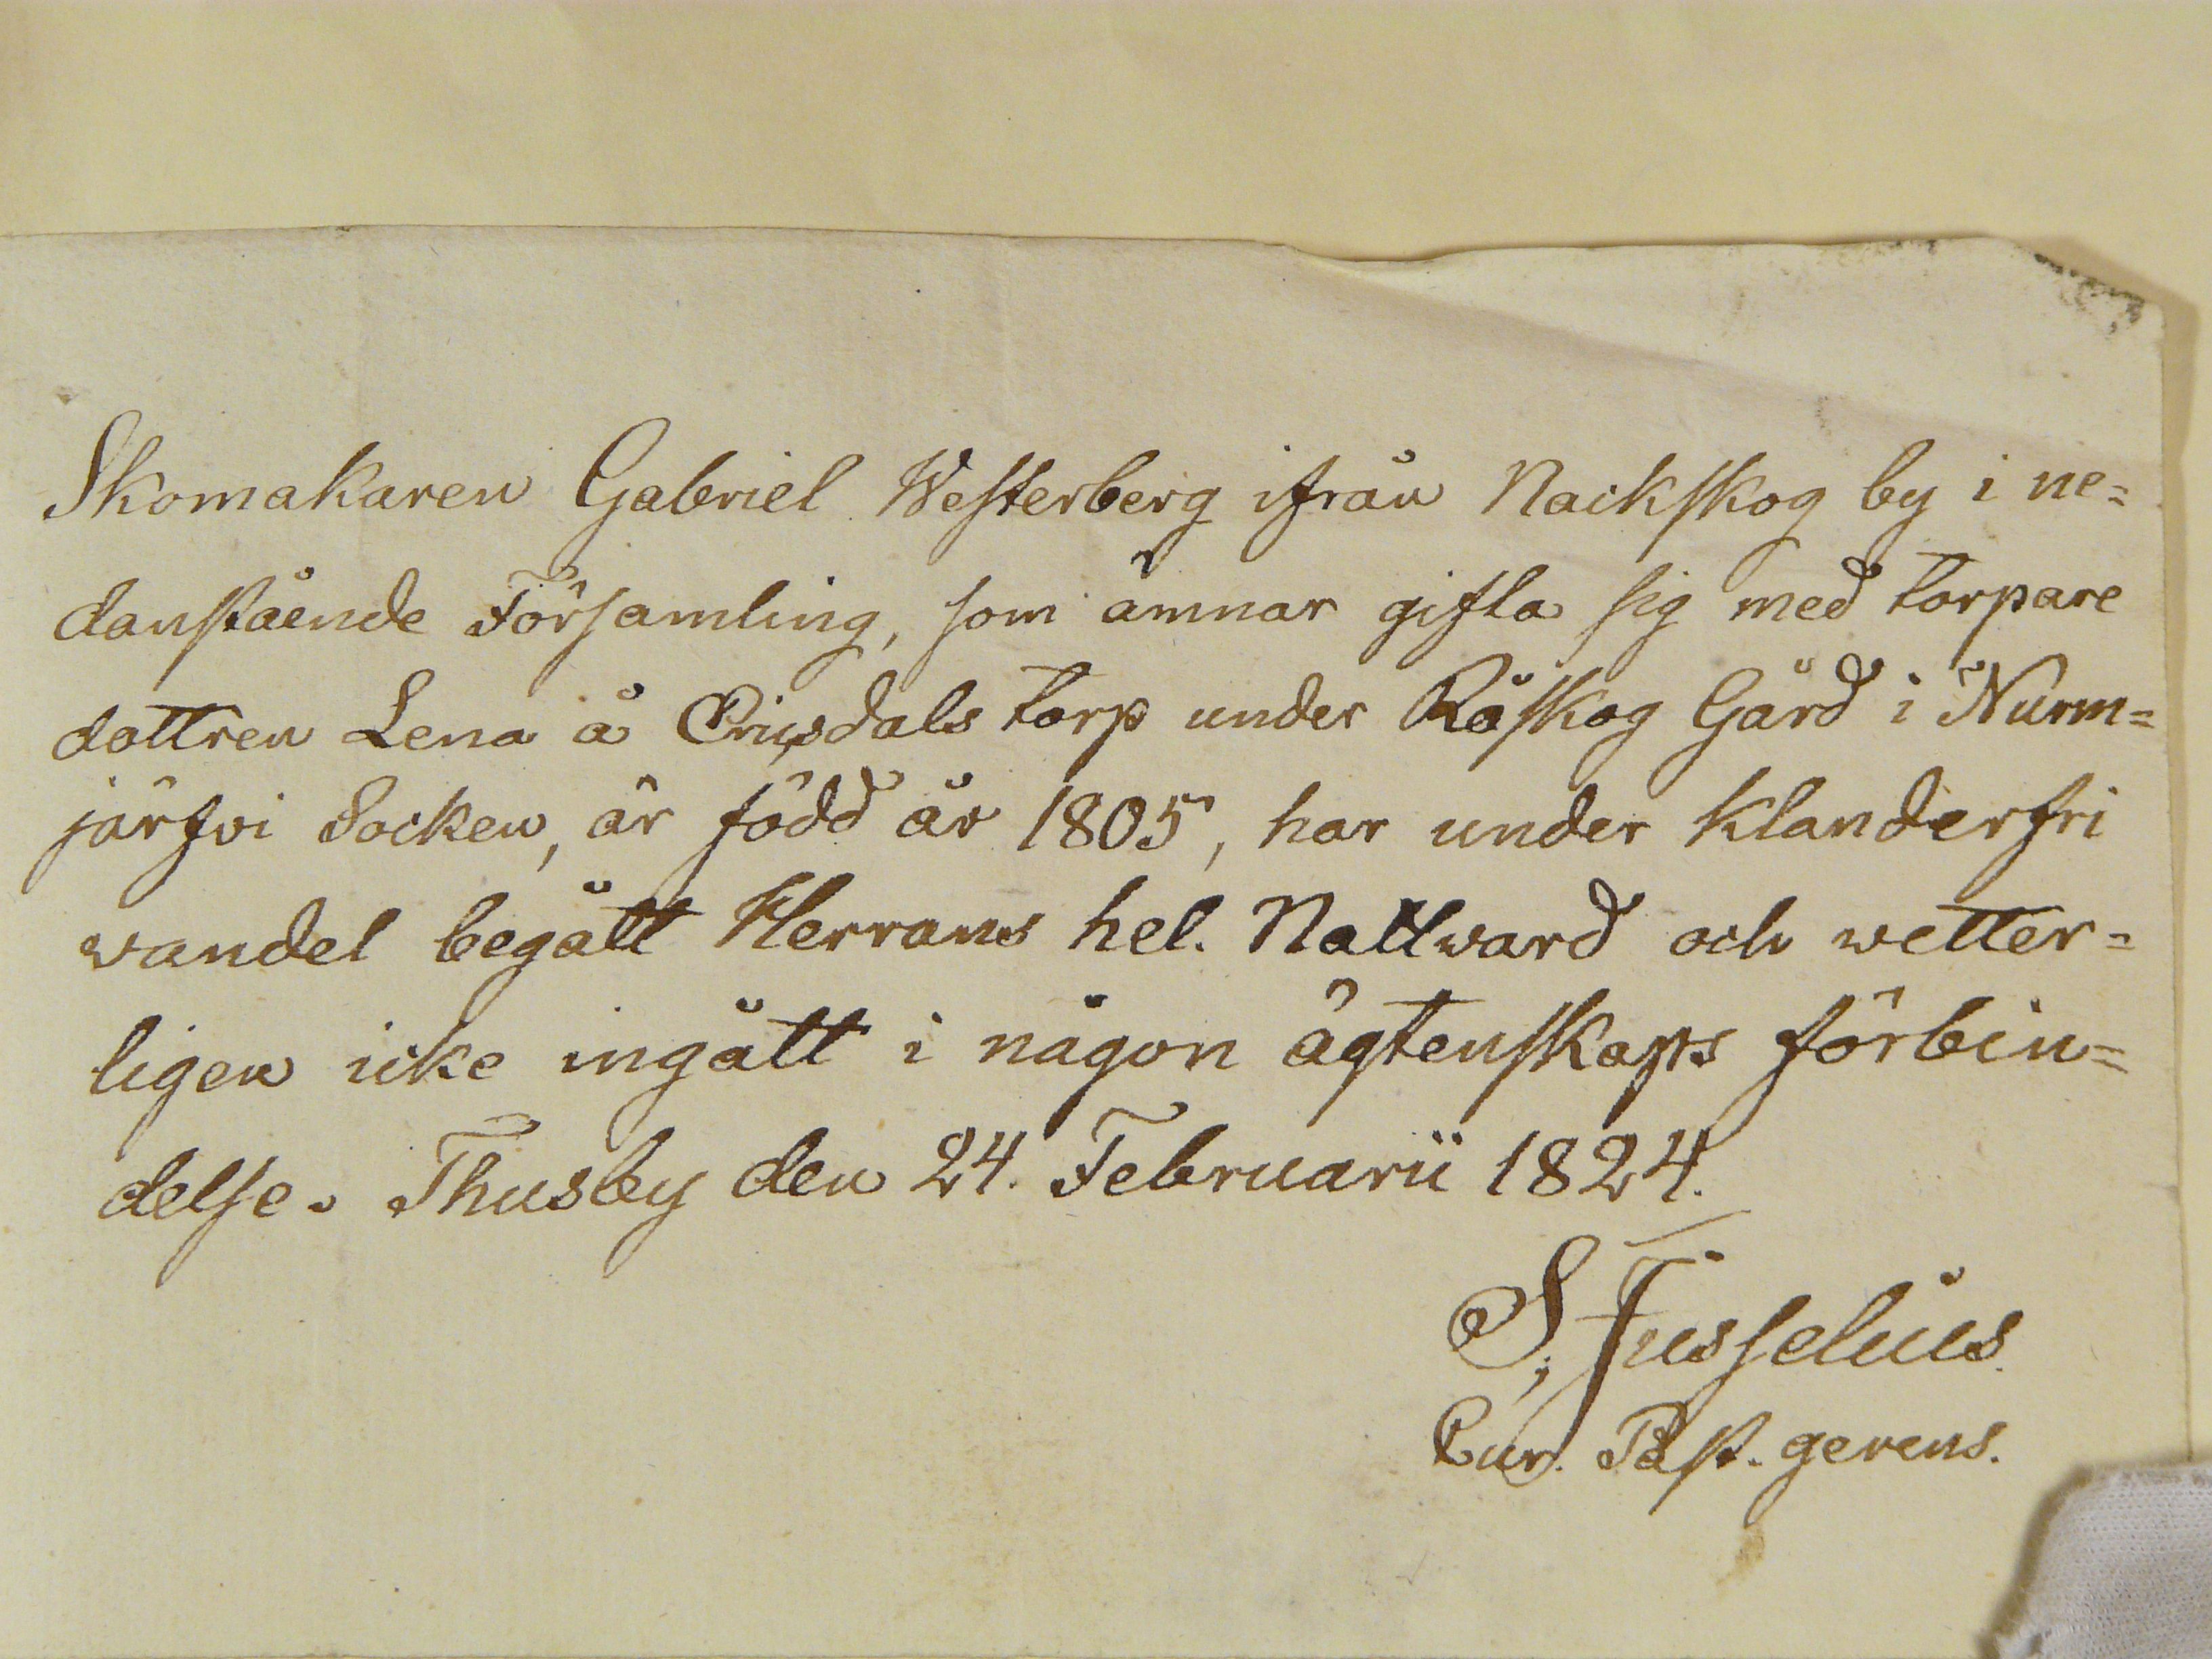 Skomakaren Gabriel Westerberg ifrån Nackskog by i ne=
danstående Församling, som ämnar gifta sig med torpare
dottren Lena å Crisdals torp under Röskog Gård i Nurm=
järfvi Socken, är född år 1805, har under klanderfri
vandel begått Herrans hel. Nattvard och vetter=
ligen icke ingått i någon ägtenskaps förbin=
delse. Thusby den 24. Februarii 1824.
S, Fusselius.
Cur. Past. gerens.